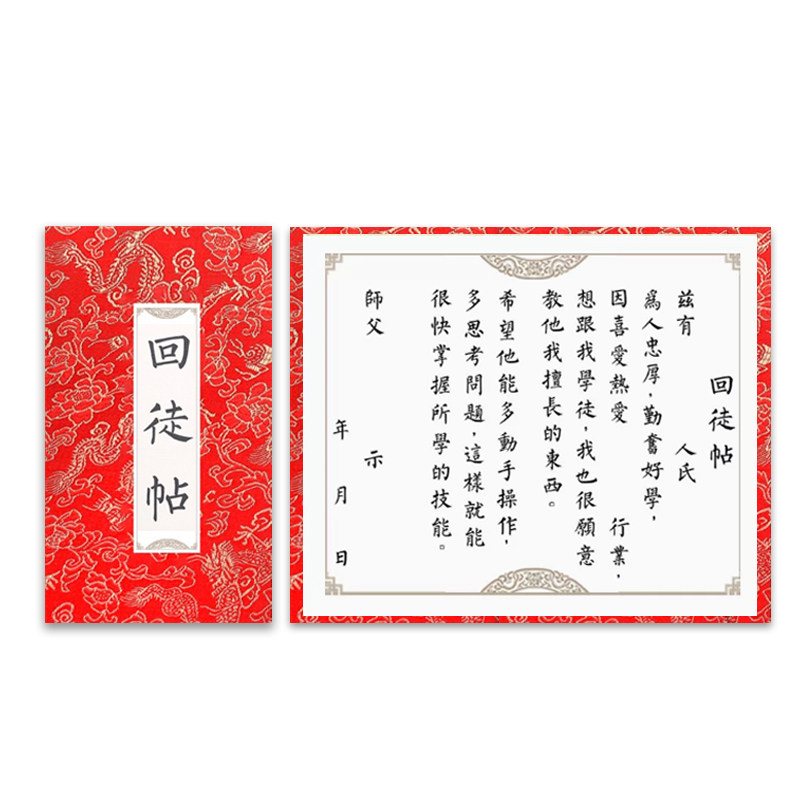 回徒帖
回徒帖
茲有 人氏
為人忠厚,勤奮好學,
因喜愛熱愛 行業,
想跟我學徒,我也很願意
教他我擅長的東西。
希望他能多動手操作,
多思考問題,這樣就能
很快掌握所學的技能。
師父 示
年 月 日